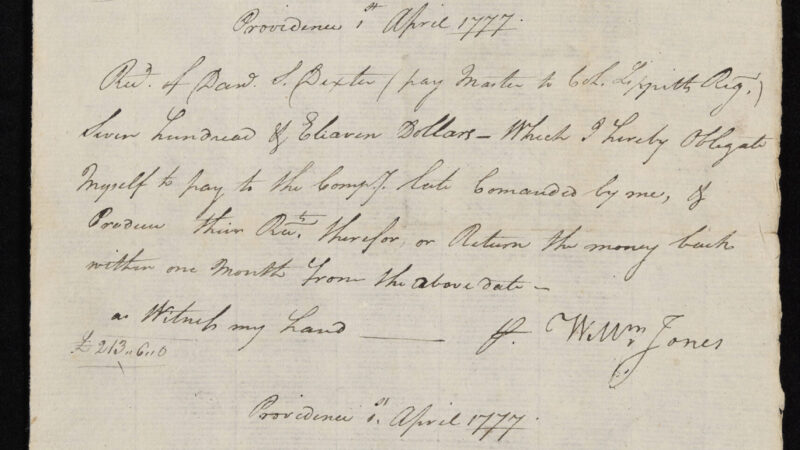 Providence 1st April 1777.
Recd. of Davd. S. Dexter (pay Master to Col. Lippitts Regt.)
Seven hundread & Eleaven Dollars — Which I hereby Obligate
Myself to pay to the Compy. late Comanded by me, &
Produce thier Rects. therefor, or Return the money back
within one Month from the above date —
as Witness my hand — Willm Jones
£ 213,,6,,0
Providence 1st. April 1777.